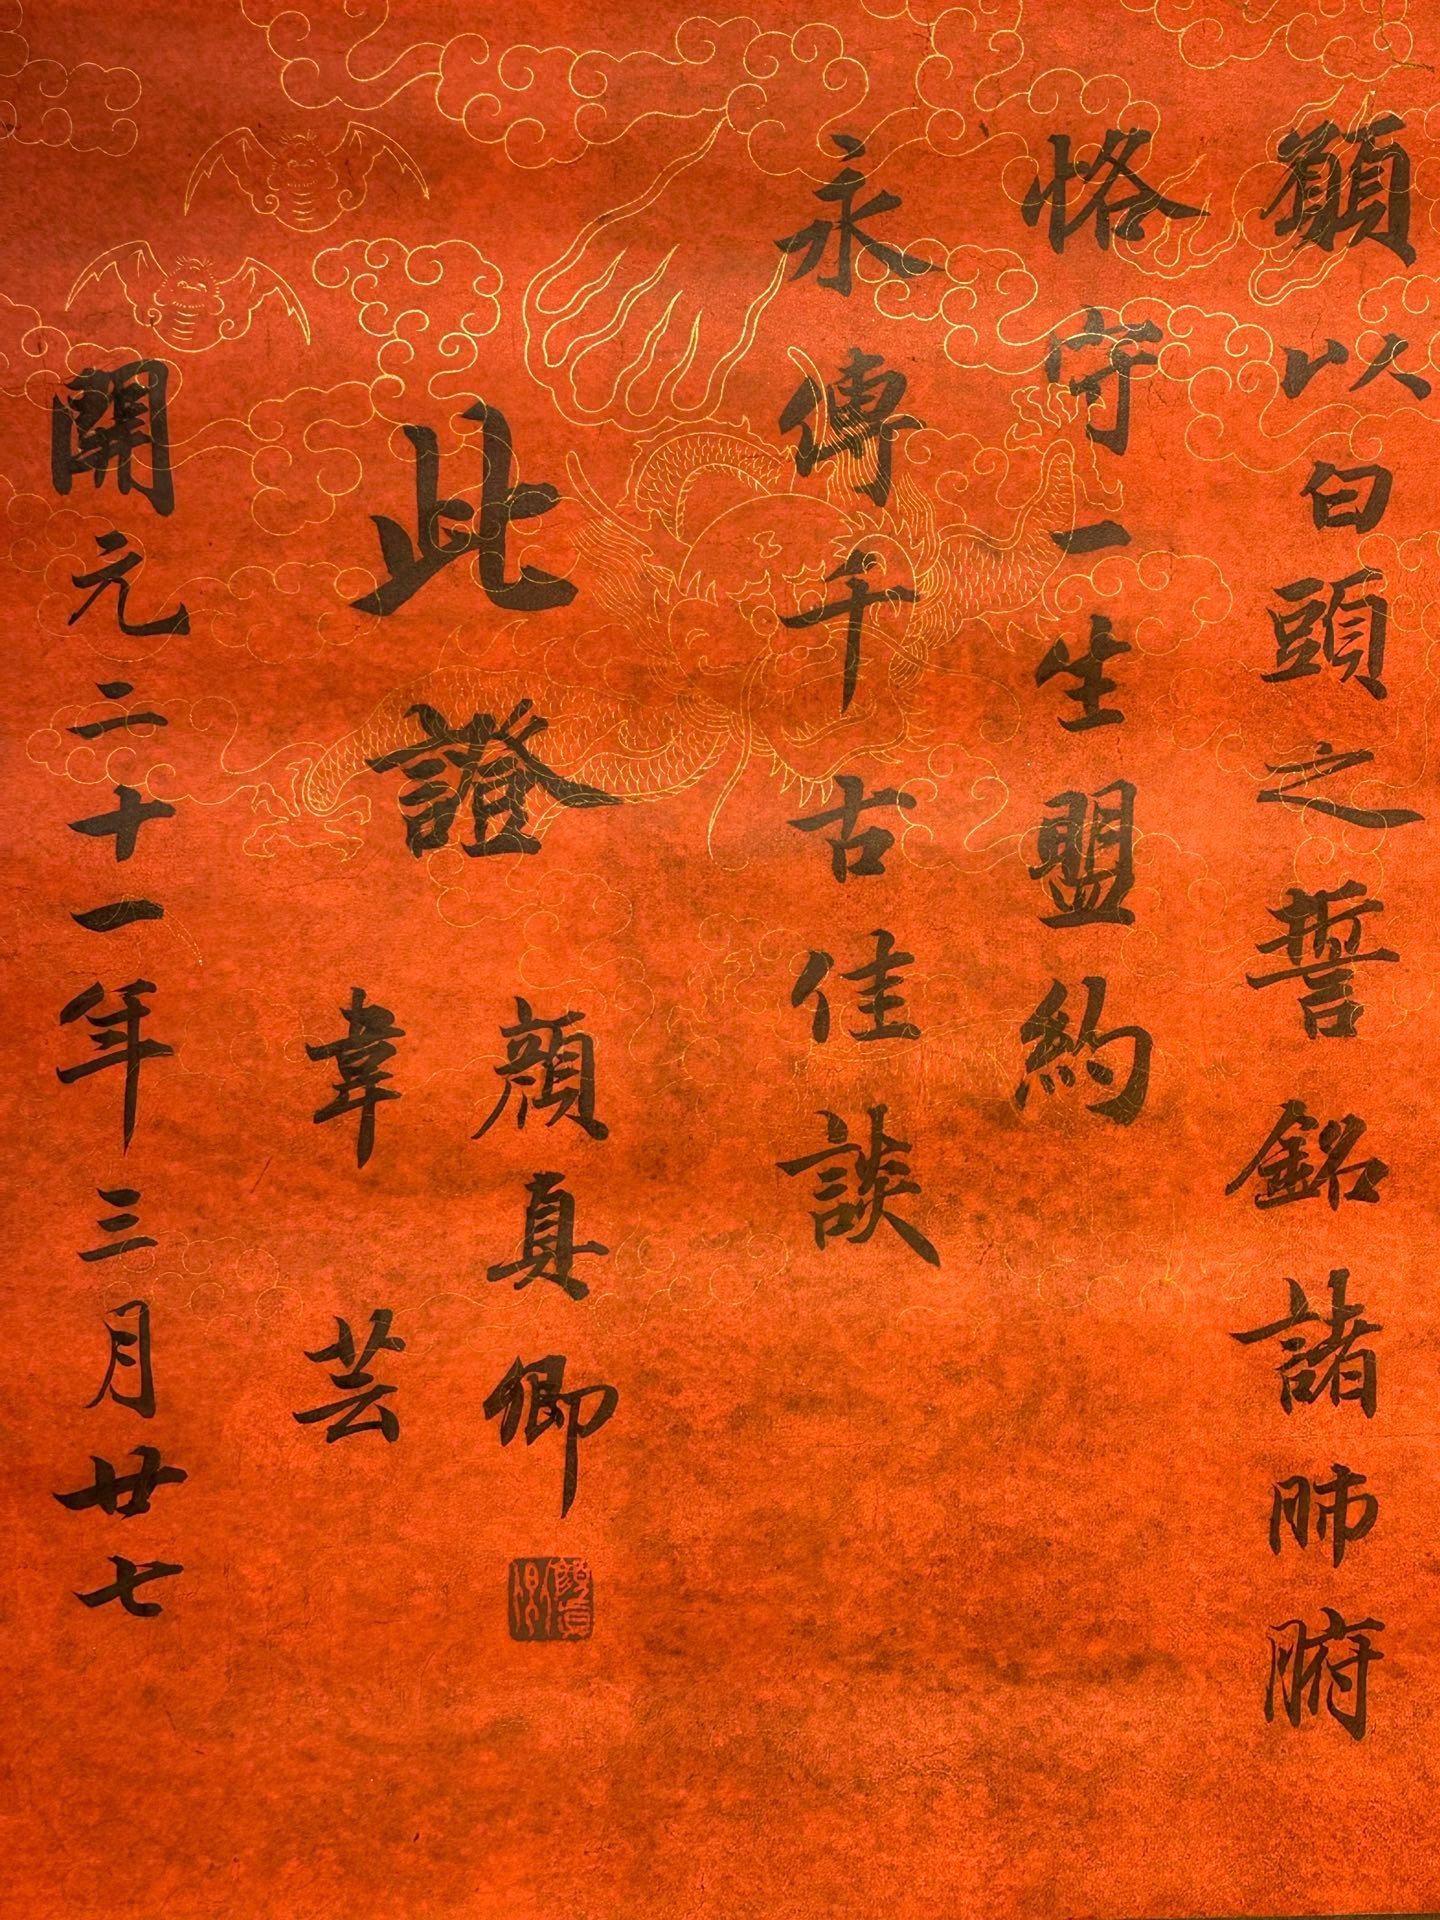 願以白頭之誓銘諸肺腑
恪守一生盟約
永傳千古佳談
此證
顏真卿
韋芸
開元二十一年三月廿七